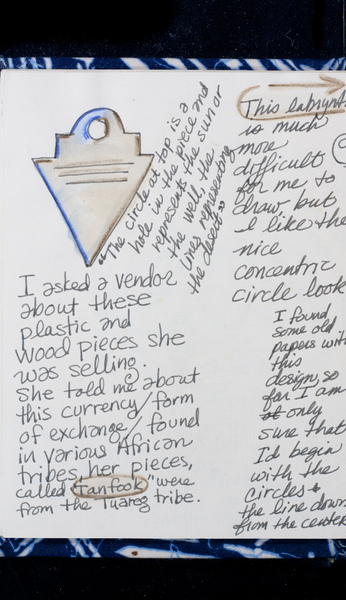 "The circle at top is a
hole in the piece and
represents the sun or
the well, the
lines representing
the desert."
I asked a vendor
about these
plastic and
wood pieces she
was selling.
She told me about
this currency/form
of exchange/found
in various African
tribes, her pieces,
called "Tanfook" were
from the Tuareg tribe.
This labrynth
is much
more
difficult
for me to
draw but
I like the
nice
concentric
circle look
I found
some old
papers with
this
design, so
far I am
only
sure that
I'd begin
with the
circles &
the line down
from the center